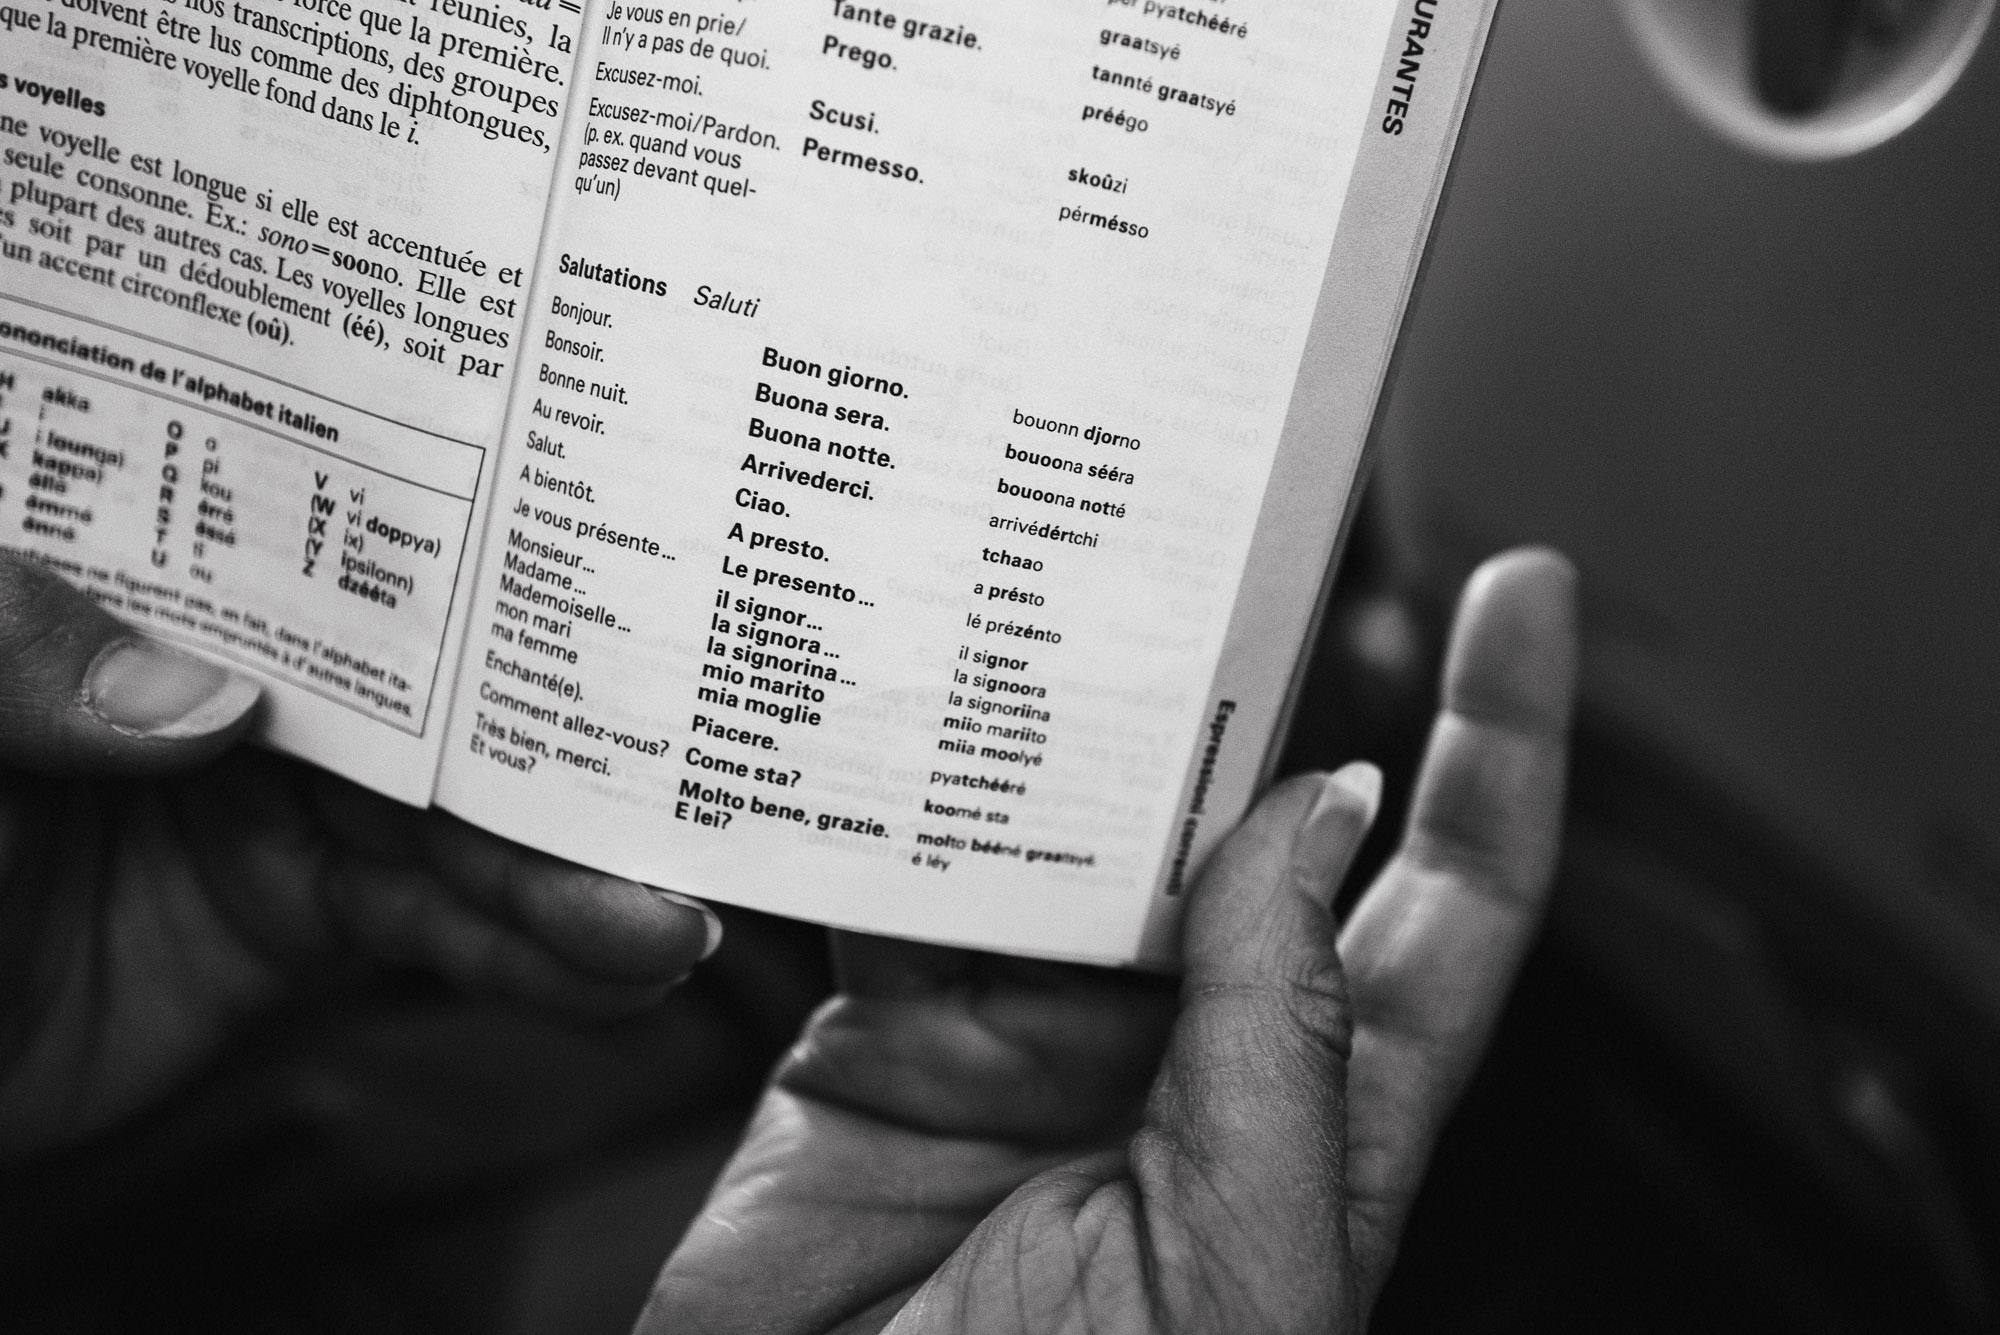 réunies, la
force que la première.
nos transcriptions, des groupes
doivent être lus comme des diphtongues,
que la première voyelle fond dans le i.
voyelles
voyelle est longue si elle est accentuée et
seule consonne. Ex.: sono=soono. Elle est
plupart des autres cas. Les voyelles longues
soit par un dédoublement (éé), soit par
un accent circonflexe (oû).
de l'alphabet italien
H akka O o V vi
I i P pi (W vi doppya)
J i lounga) Q kou (X ix)
K kappa) R érré (Y ipsilonn)
S éssé Z dzééta
T ti
U ou
ne figurent pas, en fait, dans l'alphabet ita-
dans les mots empruntés à d'autres langues.
pyatchééré
graatsyé
Tante grazie. tannté graatsyé
Je vous en prie/ Prego. préégo
Il n'y a pas de quoi.
Excusez-moi. Scusi. skoûzi
Excusez-moi/Pardon. Permesso. pérmésso
(p. ex. quand vous
passez devant quel-
qu'un)
Salutations Saluti
Bonjour. Buon giorno. bouonn djorno
Bonsoir. Buona sera. bouoona sééra
Bonne nuit. Buona notte. bouoona notté
Au revoir. Arrivederci. arrivédértchi
Salut. Ciao. tchaao
A bientôt. A presto. a présto
Je vous présente... Le presento... lé prézénto
Monsieur... il signor... il signor
Madame... la signora... la signoora
Mademoiselle... la signorina... la signoriina
mon mari mio marito miio mariito
ma femme mia moglie miia moolyé
Enchanté(e). Piacere. pyatchééré
Comment allez-vous? Come sta? koomé sta
Très bien, merci. Molto bene, grazie. molto bééné graatsyé
Et vous? E lei? é léy
URANTES
Espressioni correnti